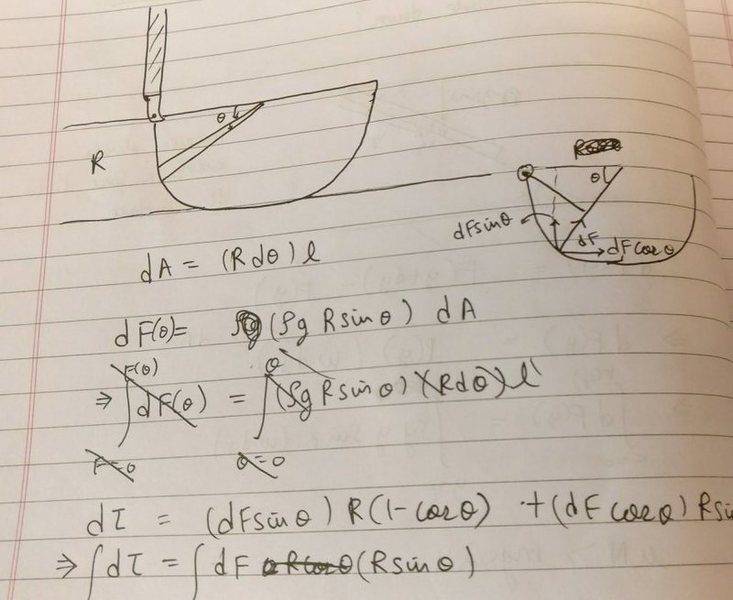 θ
R
θ
dFsinθ
dF
dFcosθ
dA = (Rdθ)l
dF(θ)= (ρg Rsinθ) dA
F(θ) θ
⇒ ∫dF(θ) = ∫(ρg Rsinθ)(Rdθ)l
F=0 θ=0
dτ = (dFsinθ) R(1-cosθ) + (dF cosθ) Rsin
⇒ ∫dτ = ∫ dF (Rsinθ)